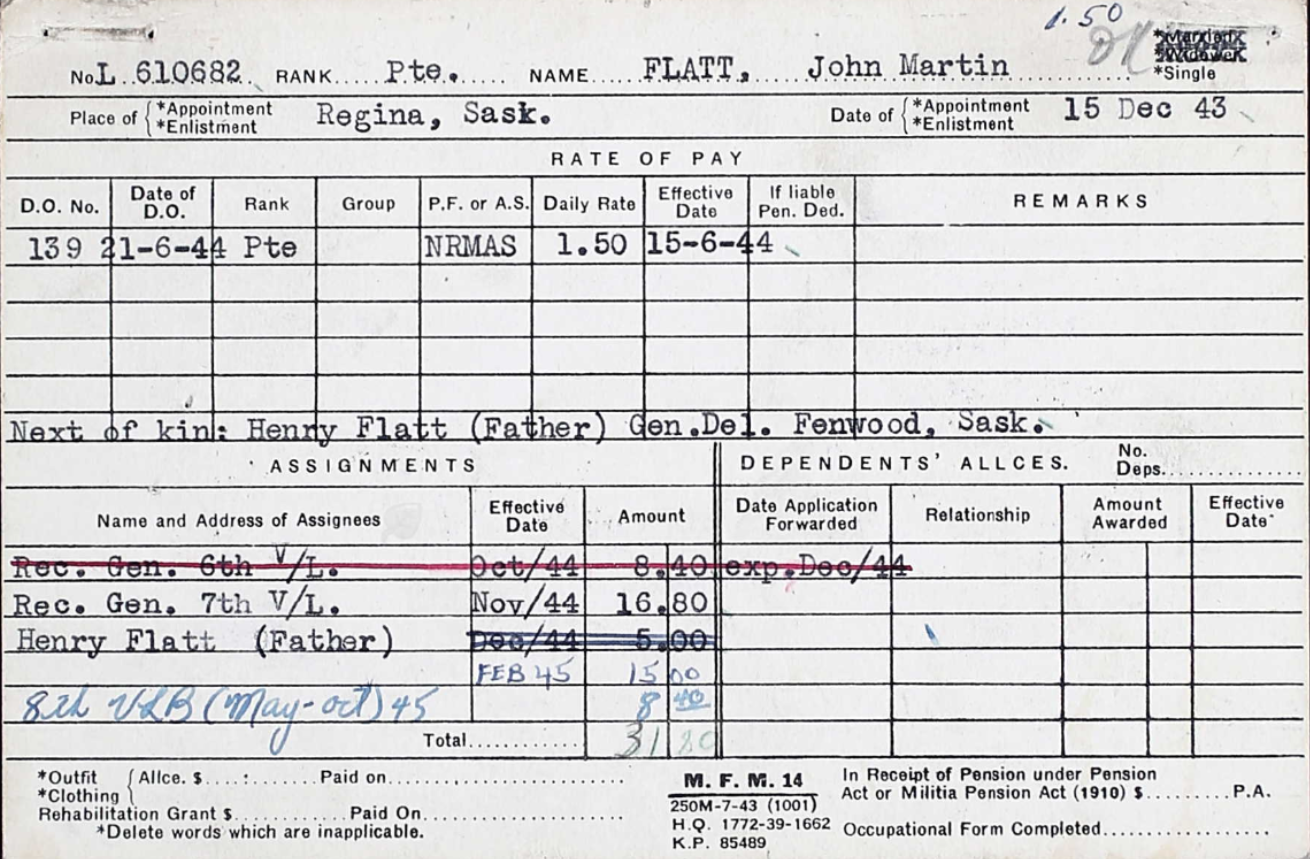 1.50
No. L 610682 RANK Pte. NAME FLATT, John Martin *Married *Widower *Single
Place of { *Appointment *Enlistment Regina, Sask. Date of { *Appointment *Enlistment 15 Dec 43
RATE OF PAY
D.O. No. Date of D.O. Rank Group P.F. or A.S. Daily Rate Effective Date If liable Pen. Ded. REMARKS
139 21-6-44 Pte NRMAS 1.50 15-6-44
Next of kin: Henry Flatt (Father) Gen.Del. Fenwood, Sask.
ASSIGNMENTS DEPENDENTS' ALLCES. No. Deps.
Name and Address of Assignees Effective Date Amount Date Application Forwarded Relationship Amount Awarded Effective Date
Rec. Gen. 6th V/L. Oct/44 8.40 exp.Dec/44
Rec. Gen. 7th V/L. Nov/44 16.80
Henry Flatt (Father) Dec/44 5.00
FEB 45 15 00
8th VLB (May-oct) 45 8 40
Total 31 80
*Outfit *Clothing { Allce. $ Paid on
Rehabilitation Grant $ Paid On
*Delete words which are inapplicable.
M. F. M. 14
250M-7-43 (1001)
H.Q. 1772-39-1662
K.P. 85489
In Receipt of Pension under Pension
Act or Militia Pension Act (1910) $ P.A.
Occupational Form Completed